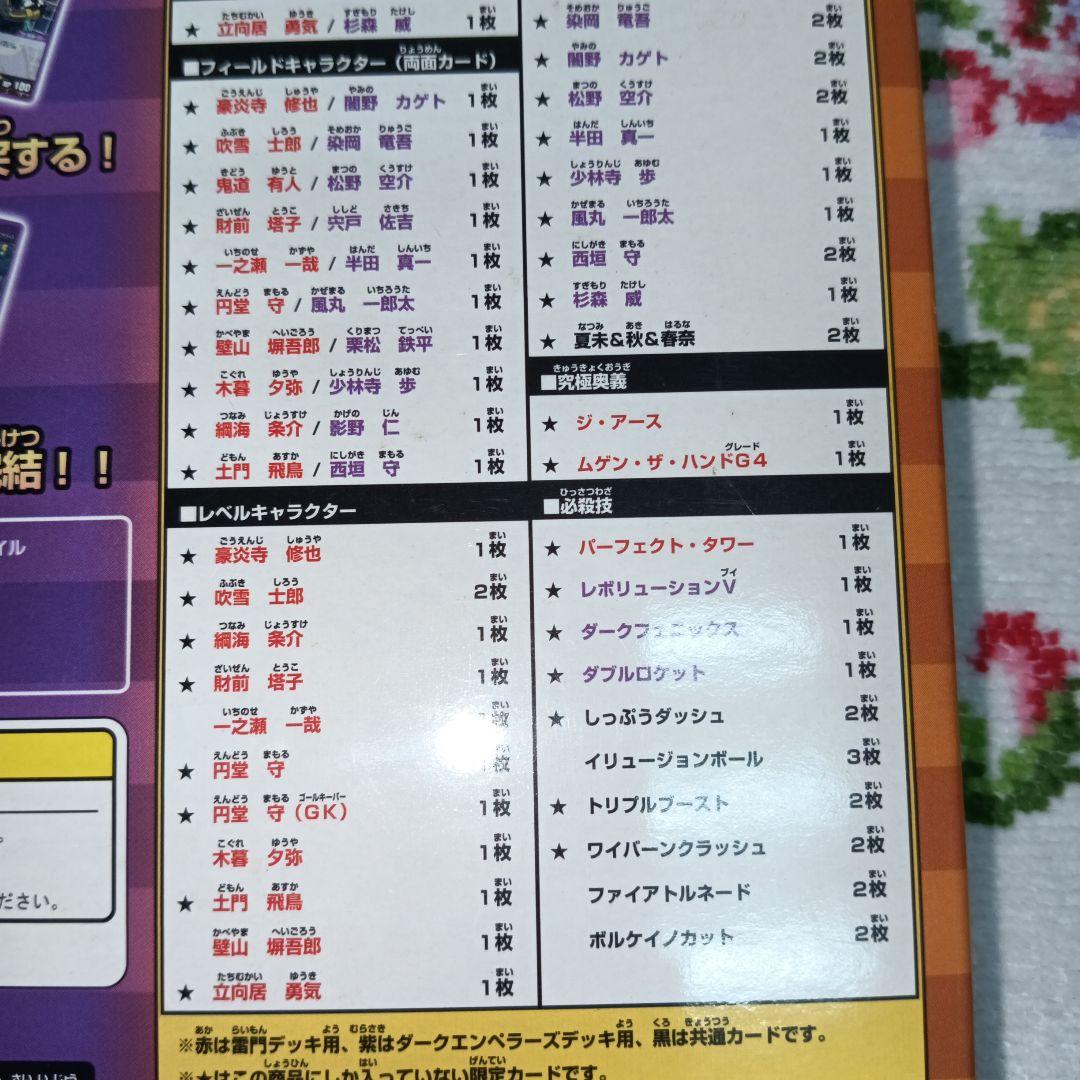 ★ 立向居 勇気 / 杉森 威 1枚
■フィールドキャラクター（両面カード）
★ 豪炎寺 修也 / 闇野 カゲト 1枚
★ 吹雪 士郎 / 染岡 竜吾 1枚
★ 鬼道 有人 / 松野 空介 1枚
★ 財前 塔子 / 宍戸 佐吉 1枚
★ 一之瀬 一哉 / 半田 真一 1枚
★ 円堂 守 / 風丸 一郎太 1枚
★ 壁山 塀吾郎 / 栗松 鉄平 1枚
★ 木暮 夕弥 / 少林寺 歩 1枚
★ 綱海 条介 / 影野 仁 1枚
★ 土門 飛鳥 / 西垣 守 1枚
■レベルキャラクター
★ 豪炎寺 修也 1枚
★ 吹雪 士郎 2枚
★ 綱海 条介 1枚
★ 財前 塔子 1枚
一之瀬 一哉 1枚
★ 円堂 守 1枚
★ 円堂 守（GK） 1枚
木暮 夕弥 1枚
★ 土門 飛鳥 1枚
壁山 塀吾郎 1枚
★ 立向居 勇気 1枚
★ 染岡 竜吾 2枚
★ 闇野 カゲト 2枚
★ 松野 空介 2枚
★ 半田 真一 1枚
★ 少林寺 歩 1枚
★ 風丸 一郎太 1枚
★ 西垣 守 2枚
★ 杉森 威 1枚
★ 夏未&秋&春奈 2枚
■究極奥義
★ ジ・アース 1枚
★ ムゲン・ザ・ハンドG4 1枚
■必殺技
★ パーフェクト・タワー 1枚
★ レボリューションV 1枚
★ ダークフェニックス 1枚
★ ダブルロケット 1枚
★ しっぷうダッシュ 2枚
イリュージョンボール 3枚
★ トリプルブースト 2枚
★ ワイバーンクラッシュ 2枚
ファイアトルネード 2枚
ボルケイノカット 2枚
※赤は雷門デッキ用、紫はダークエンペラーズデッキ用、黒は共通カードです。
※★はこの商品にしか入っていない限定カードです。
する！
結！！
イル
ださい。